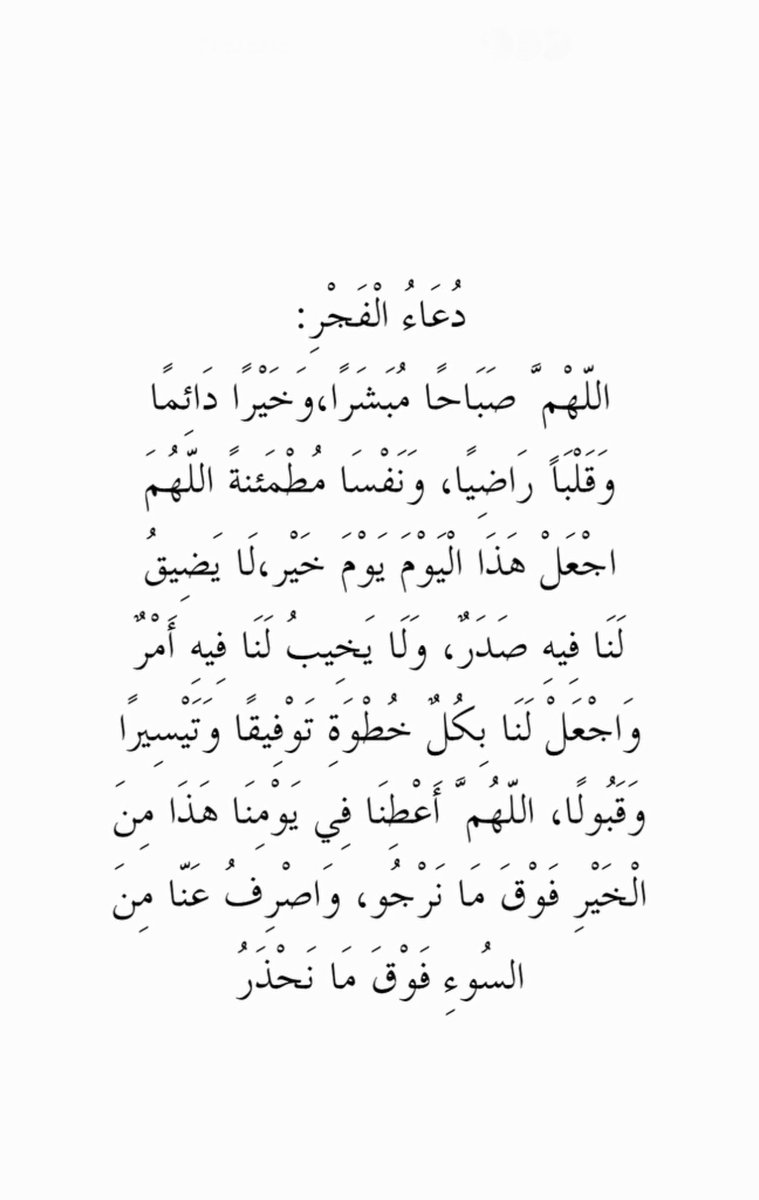 دُعَاءُ الْفَجْرِ:
اللّهْم َّ صَبَاحًا مُبَشَرًا،وَخَيْرًا دَائِمًا
وَقَلْبَاً رَاضِيًا، وَنَفْسَا مُطْمَئنةً اللّهُمَ
اجْعَلْ هَذَا الْيَوْمَ يَوْمَ خَيْر،لَا يَضِيقُ
لَنَا فِيهِ صَدَرٌ، وَلَا يَخِيبُ لَنَا فِيهِ أَمْرٌ
وَاجْعَلْ لَنَا بِكُلٌ خُطْوَةِ تَوْفِيقًا وَتَيْسِيرًا
وَقَبُولًا، اللّهُم َّ أَعْطِنَا فِي يَوْمِنَا هَذَا مِنَ
الْخَيْرِ فَوْقَ مَا نَرْجُو، وَاصْرِفُ عَنّا مِنَ
السُوءِ فَوْقَ مَا نَحْذَرُ